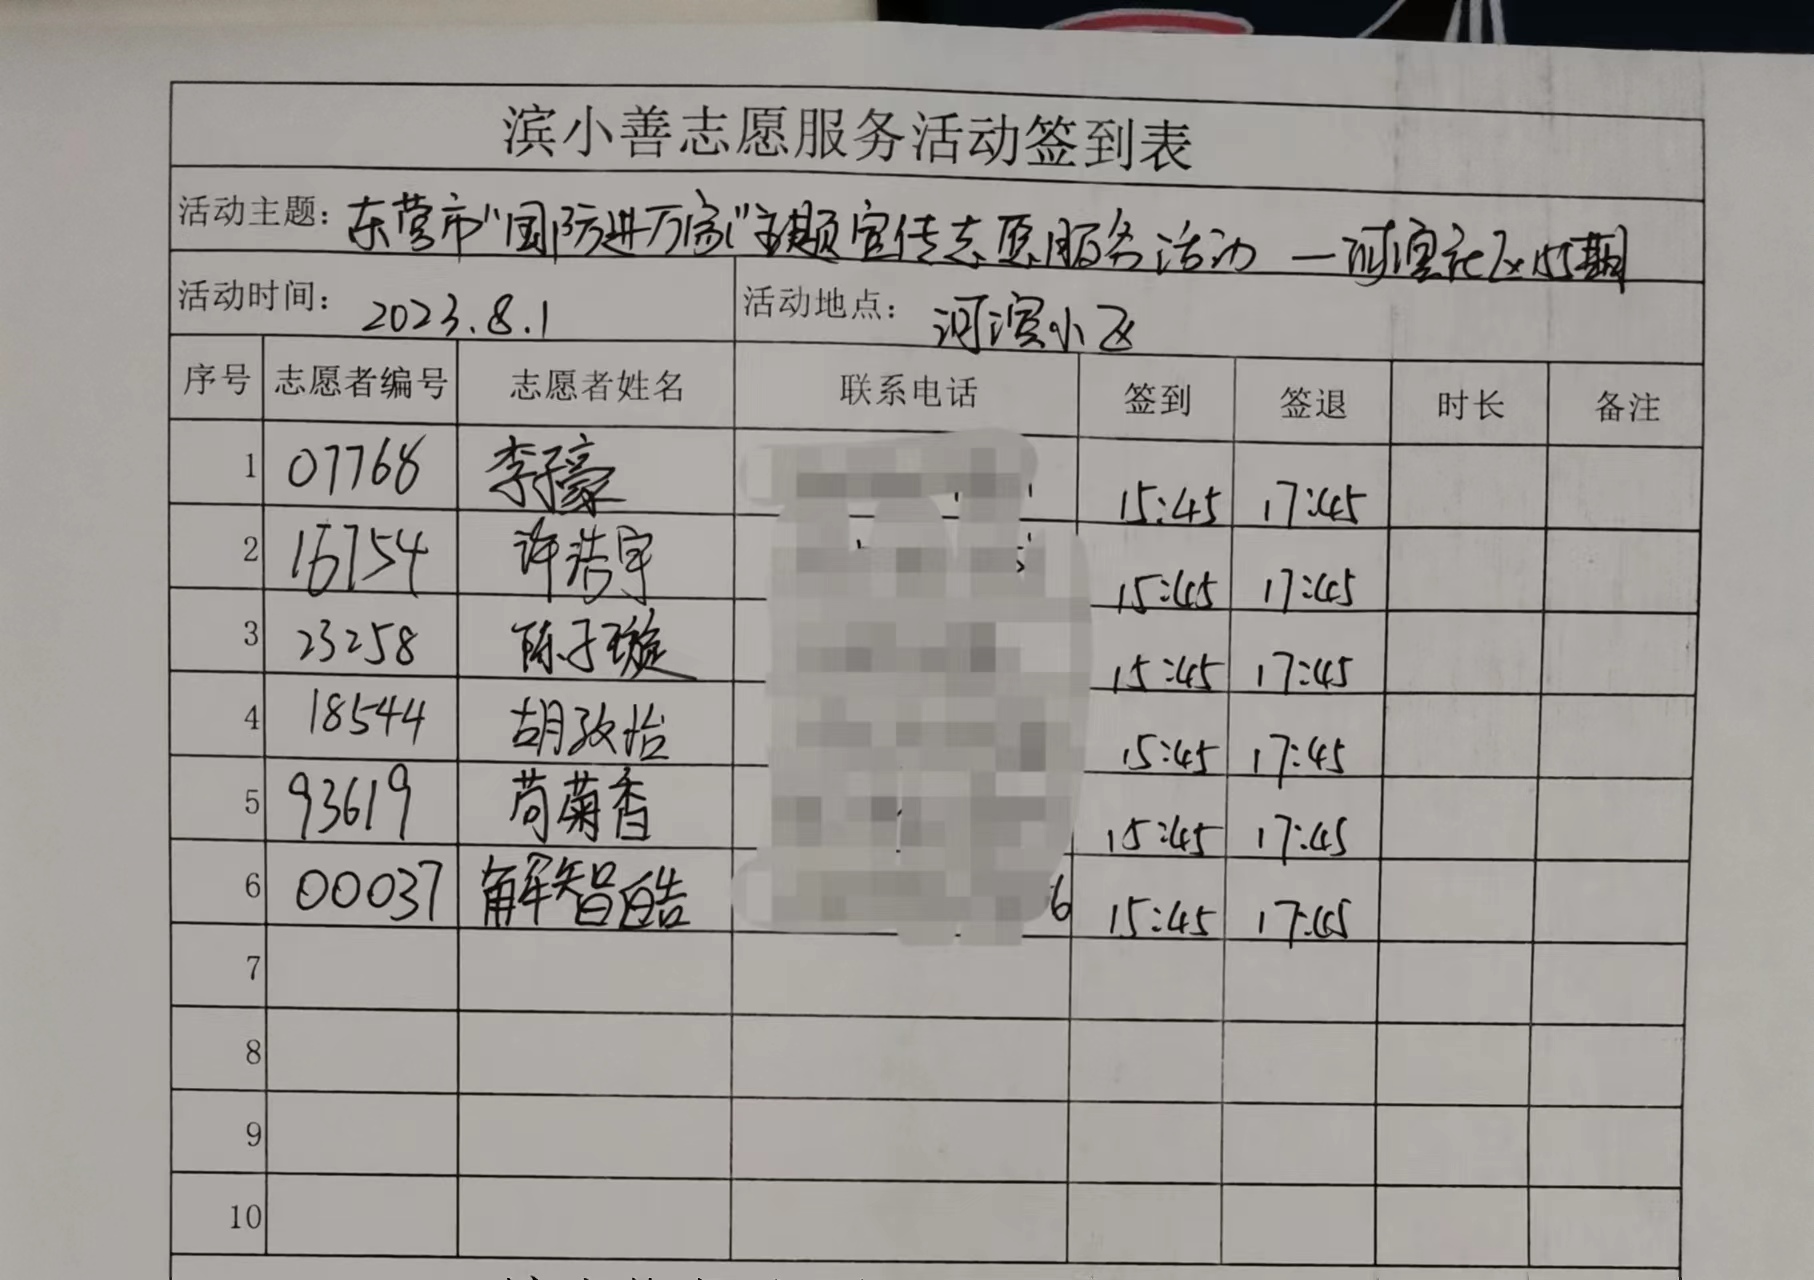 滨小善志愿服务活动签到表
活动主题：东营市“国防进万家”主题宣传志愿服务活动—河滨社区
活动时间：2023.8.1 活动地点：河滨小区
序号 志愿者编号 志愿者姓名 联系电话 签到 签退 时长 备注
1 07768 李子豪 15:45 17:45
2 16754 许浩宇 15:45 17:45
3 23258 陈子璇 15:45 17:45
4 18544 胡孜怡 15:45 17:45
5 93619 苟菊香 15:45 17:45
6 00037 解智皓 6 15:45 17:45
7
8
9
10